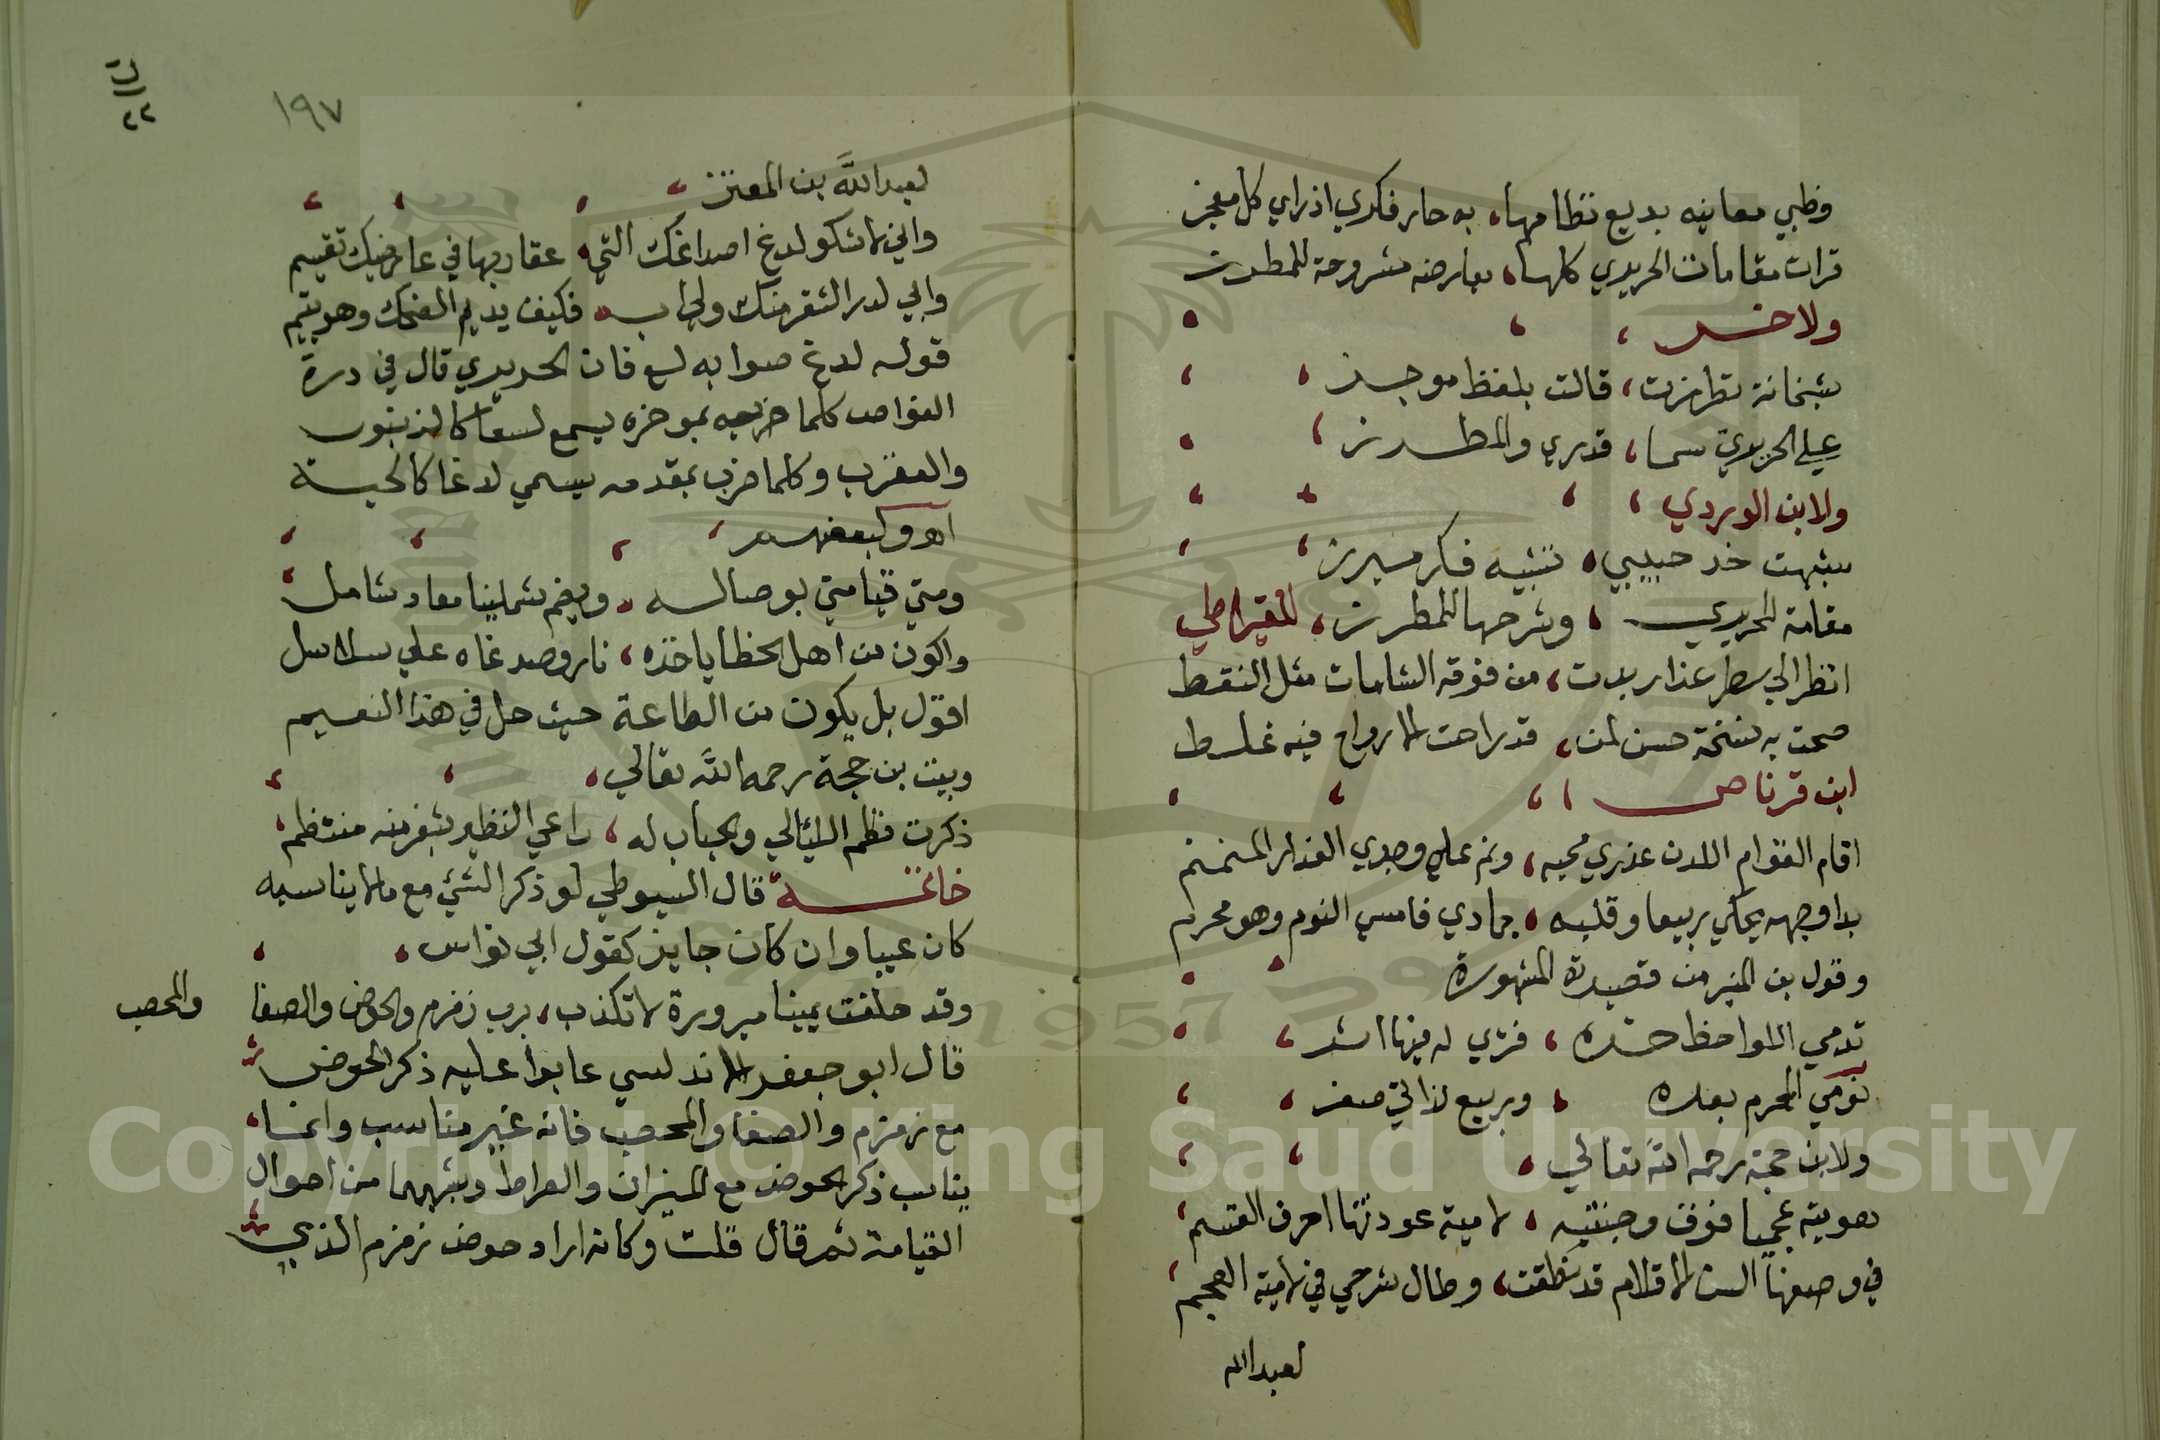 وظبي معانيه بديع نظامها، به حار فكري اذ راي كل معجز
قرات مقامات الحريري كلها، بعارضه مشروحة للمطرزي
ولاخر
شبخانة تطرزت، قالت بلفظ موجز
علي الحريري سما، قدري والمطرز
ولابن الوردي
شبهت خد حبيبي، تشبيه فكر مبرز
مقامة للحريري، وشرحها للمطرز، للقيراطي
انظر الي سطر عذار بدت، من فوقه الشامات مثل النقط
صحت به نسخة حسن لمن، قد راحت الارواح فيه غلط
ابن قرناص
اقام القوام اللدن عذري محبه، ونم علي وجدي العذار المنمنم
بدا وجهه يحكي ربيعا وقلبه، جمادي فامسي النوم وهو محرم
وقول بن المنير من قصيدته المشهورة
تدمي اللواحظ خده، فتري له فيها اثر
نومي المحرم بعده، وربيع لذاتي صفر
ولابن حجة رحمه الله تعالي
هويته عجميا فوق وجنته، لامية عوذتها احرف القسم
في وصفها السن الاقلام قد نطقت، وطال شرحي في لامية العجم
لعبدالله
١٩٧
لعبد الله بن المعتز
واني لاشكو لدغ اصداغك التي، عقاربها في عارضيك تقيم
وابكي لدر الثغر منك ولي اب، فكيف يديم الضحك وهو يتيم
قوله لدغ صوابه لسع فان الحريري قال في درة
الغواص كلما ضرب بموخره يسمع لسعا كالزنبور
والعقرب وكلما ضرب بمقدمه يسمي لدغا كالحية
اه وكبعضهم
ومتي قيامتي بوصاله، ويضم شملينا معاد شامل
واكون من اهل الخطايا خده، نار وصدغاه علي سلاسل
اقول بل يكون من الطاعة حيث حل في هذا النعيم
وبيت بن حجة رحمه الله تعالي
ذكرت نظم اللئالي والحباب له، راعي النظير بثغر منه منتظم
خاتمة قال السيوطي لو ذكر الشئ مع ما لا يناسبه
كان عيبا وان كان جايز كقول ابي نواس
وقد حلفت يمينا مبرورة لا تكذب، برب زمزم والحوض والصفا والمحصب
قال ابو جعفر الاندلسي عابوا عليه ذكر الحوض
مع زمزم والصفا والمحصب فانه غير مناسب وانما
يناسب ذكر الحوض مع الميزان والصراط وشبههما من احوال
القيامة ثم قال قلت وكانه اراد حوض زمزم الذي